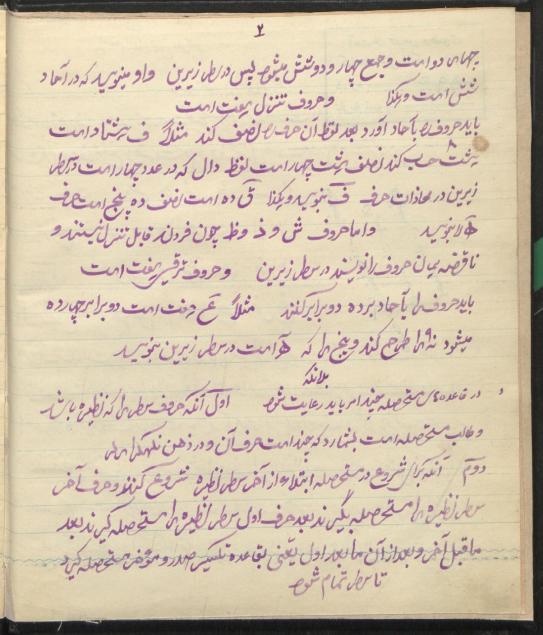 ۲
چهار و دو است و جمع چهار و دو شش میشود پس در سطر زیرین واو مینویسید که در آحاد
شش است و هکذا و حروف تنزل هفت است
باید حروف را بآحاد آورد بعد لفظ آن حرف را نصف کند مثلاً ف هشتاد است
هشت حساب کند نصف هشت چهار است لفظ دال که در عدد چهار است در سطر
زیرین در محاذات حرف ف بنویسید و هکذا ق ده است نصف ده پنج است حرف
ه را بنویسید و اما حروف ش و ذ و ظ چون فردند قابل تنزل نیستند و
ناقص همان حروف را نویسند در سطر زیرین و حروف ترقی هفت است
باید حروف را بآحاد برده دو برابر کنند مثلاً غ هفت است دو برابر چهارده
میشود نه را طرح کند و پنج را که ه است در سطر زیرین بنویسید
بدانکه
در قاعده مستحصله چند امر باید رعایت شود اول آنکه حروف سطر را که نظیره باشد
و طالب مستحصله است بشمارد که چند است حرف آن و در ذهن نگهدارد
دوم آنکه برای شروع در مستحصله ابتداء از آخر سطر نظیره شروع کنند و حرف آخر
سطر نظیره را مستحصله بگیرند بعد حرف اول سطر نظیره را مستحصله گیرند بعد
ماقبل آخر و بعد از آن مابعد اول یعنی بقاعده تکسیر صدر و مؤخر مستحصله گیرد
تا سطر تمام شود